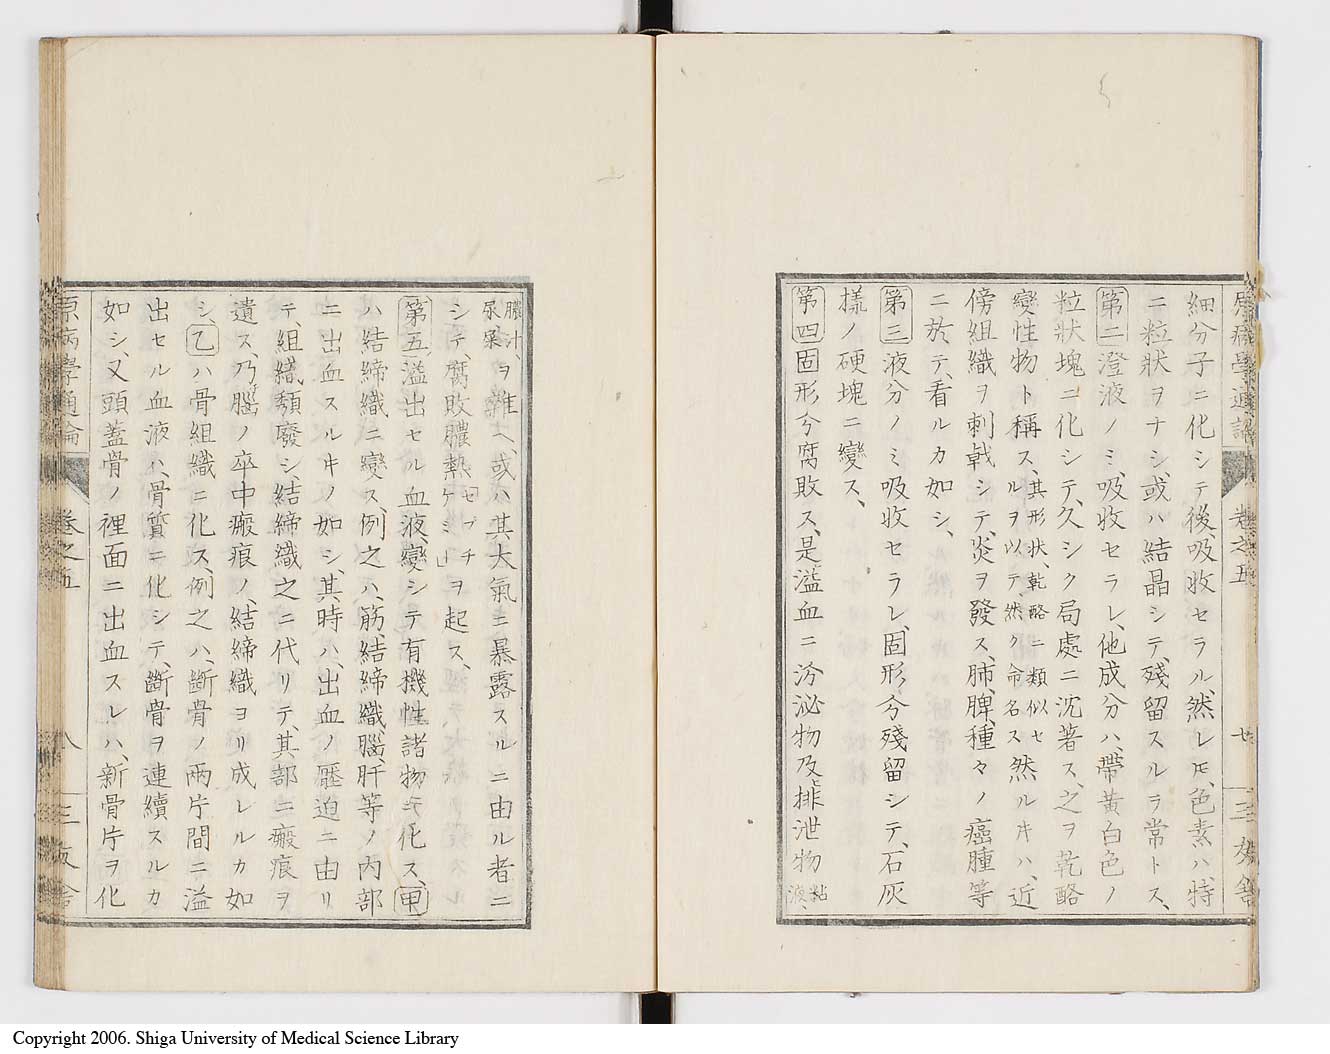 原病學通論 卷之五 廿 三友舍
細分子ニ化シテ後、吸收セラル、然レ𪜈、色素ハ、特
ニ粒狀ヲナシ、或ハ結晶シテ、殘留スルヲ常トス、
第二澄液ノミ、吸收セラレ、他成分ハ、帶黃白色ノ
粒狀塊ニ化シテ、久シク局處ニ沉著ス、之ヲ乾酪
變性物ト稱ス、其形狀、乾酪ニ類似セルヲ以テ、然ク命名ス然ル𪜈ハ、近
傍組織ヲ刺戟シテ、炎ヲ發ス、肺、脾、種々ノ癌腫等
ニ於テ、看ルカ如シ、
第三液分ノミ吸收セラレ、固形分殘留シテ、石灰
樣ノ硬塊ニ變ス、
第四固形分腐敗ス、是溢血ニ汾泌物及排泄物粘液、
膿汁、尿糞ヲ雜ヘ、或ハ其大氣ニ暴露スルニ由ル者ニ
シテ、腐敗膿熱「セプチケミー」ヲ起ス、
第五溢出セル血液、變シテ有機性諸物ニ化ス、甲
ハ結締織ニ變ス、例之ハ、筋、結締織、腦、肝等ノ內部
ニ出血スルキノ如シ、其時ハ、出血ノ壓迫ニ由リ
テ、組織頽廢シ、結締織之ニ代リテ、其部ニ瘢痕ヲ
遺ス、乃腦ノ卒中瘢痕ノ、結締織ヨリ成レルカ如
シ、乙ハ骨組織ニ化ス、例之ハ、斷骨ノ兩片間ニ溢
出セル血液ハ、骨質ニ化シテ、斷骨ヲ連續スルカ
如シ、又頭蓋骨ノ裡面ニ出血スレハ、新骨片ヲ化
原病學通論 卷之五 八 三友舍
Copyright 2006. Shiga University of Medical Science Library